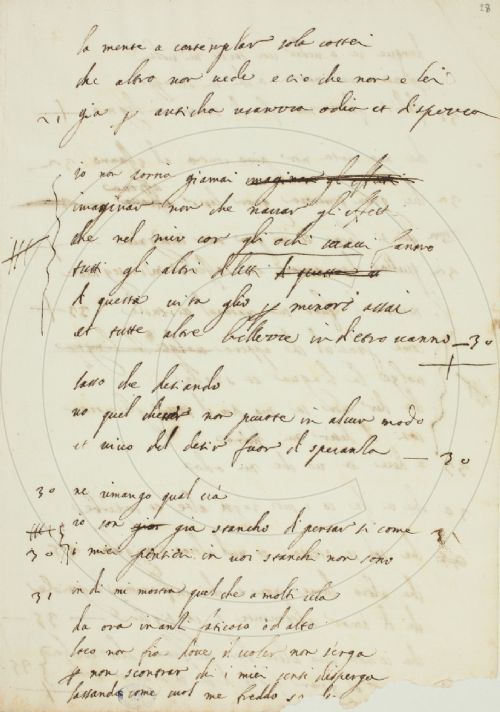 28
la mente a contemplar sola costei
che altro non vede e cio che non e lei
21 gia p anticha usanza odia et disprezza
io non poria giamai imaginar gli effetti
imaginar non che narrar gli effetti
che nel mio cor gli ochi soavi fanno
tutti gli altri diletti di questa vi
di questa vita glio p minori assai
et tutte altre bellezze in dietro vanno – 30
lasso che desiando
vo quel che non puote in alcun modo
et vivo del desir fuor di speranza – 30
30 ne rimango qual era
io son gia stancho di pensar si come 31
30 i miei pensieri in voi stanchi non sono
31 indi mi mostra quel che a molti cela
da ora inanti faticoso od alto
loco non fia dove il voler non s'erga
p non scontrar chi i miei sensi disperga
lassando come suol me freddo